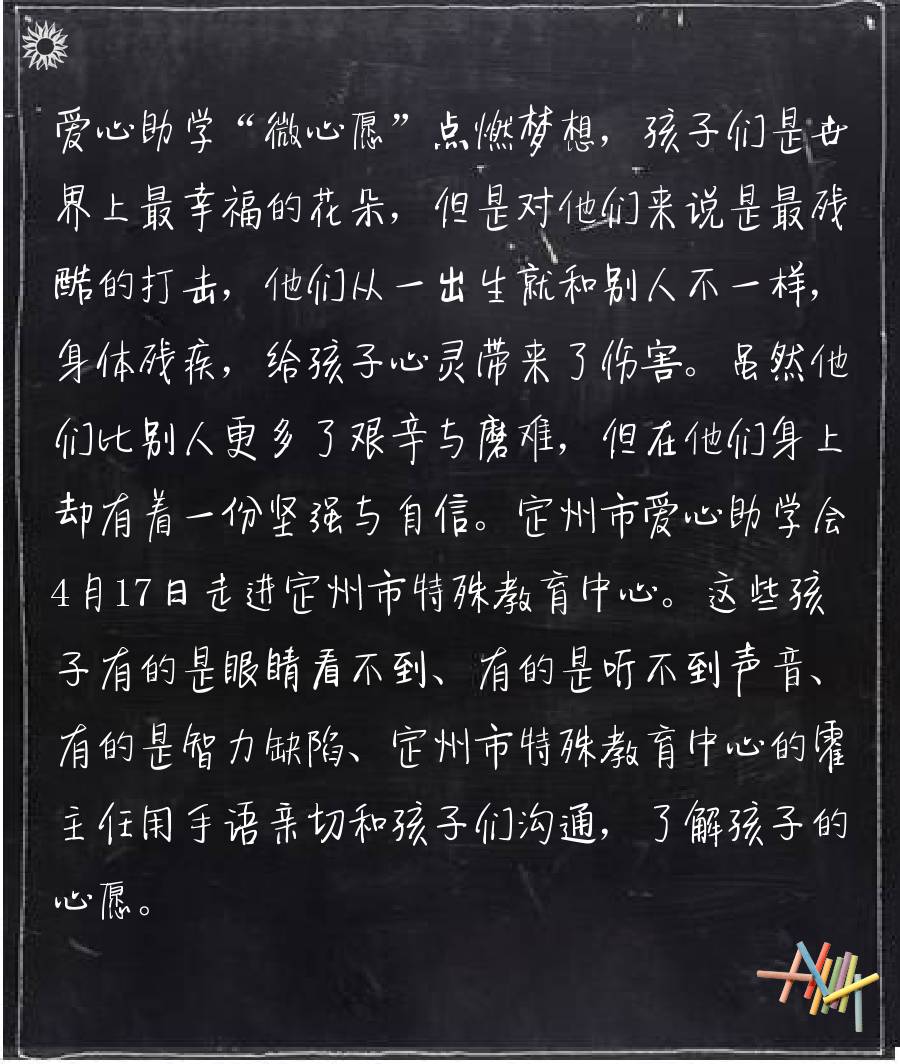 爱心助学“微心愿”点燃梦想，孩子们是世
界上最幸福的花朵，但是对他们来说是最残
酷的打击，他们从一出生就和别人不一样，
身体残疾，给孩子心灵带来了伤害。虽然他
们比别人更多了艰辛与磨难，但在他们身上
却有着一份坚强与自信。定州市爱心助学会
4月17日走进定州市特殊教育中心。这些孩
子有的是眼睛看不到、有的是听不到声音、
有的是智力缺陷、定州市特殊教育中心的霍
主任用手语亲切和孩子们沟通，了解孩子的
心愿。